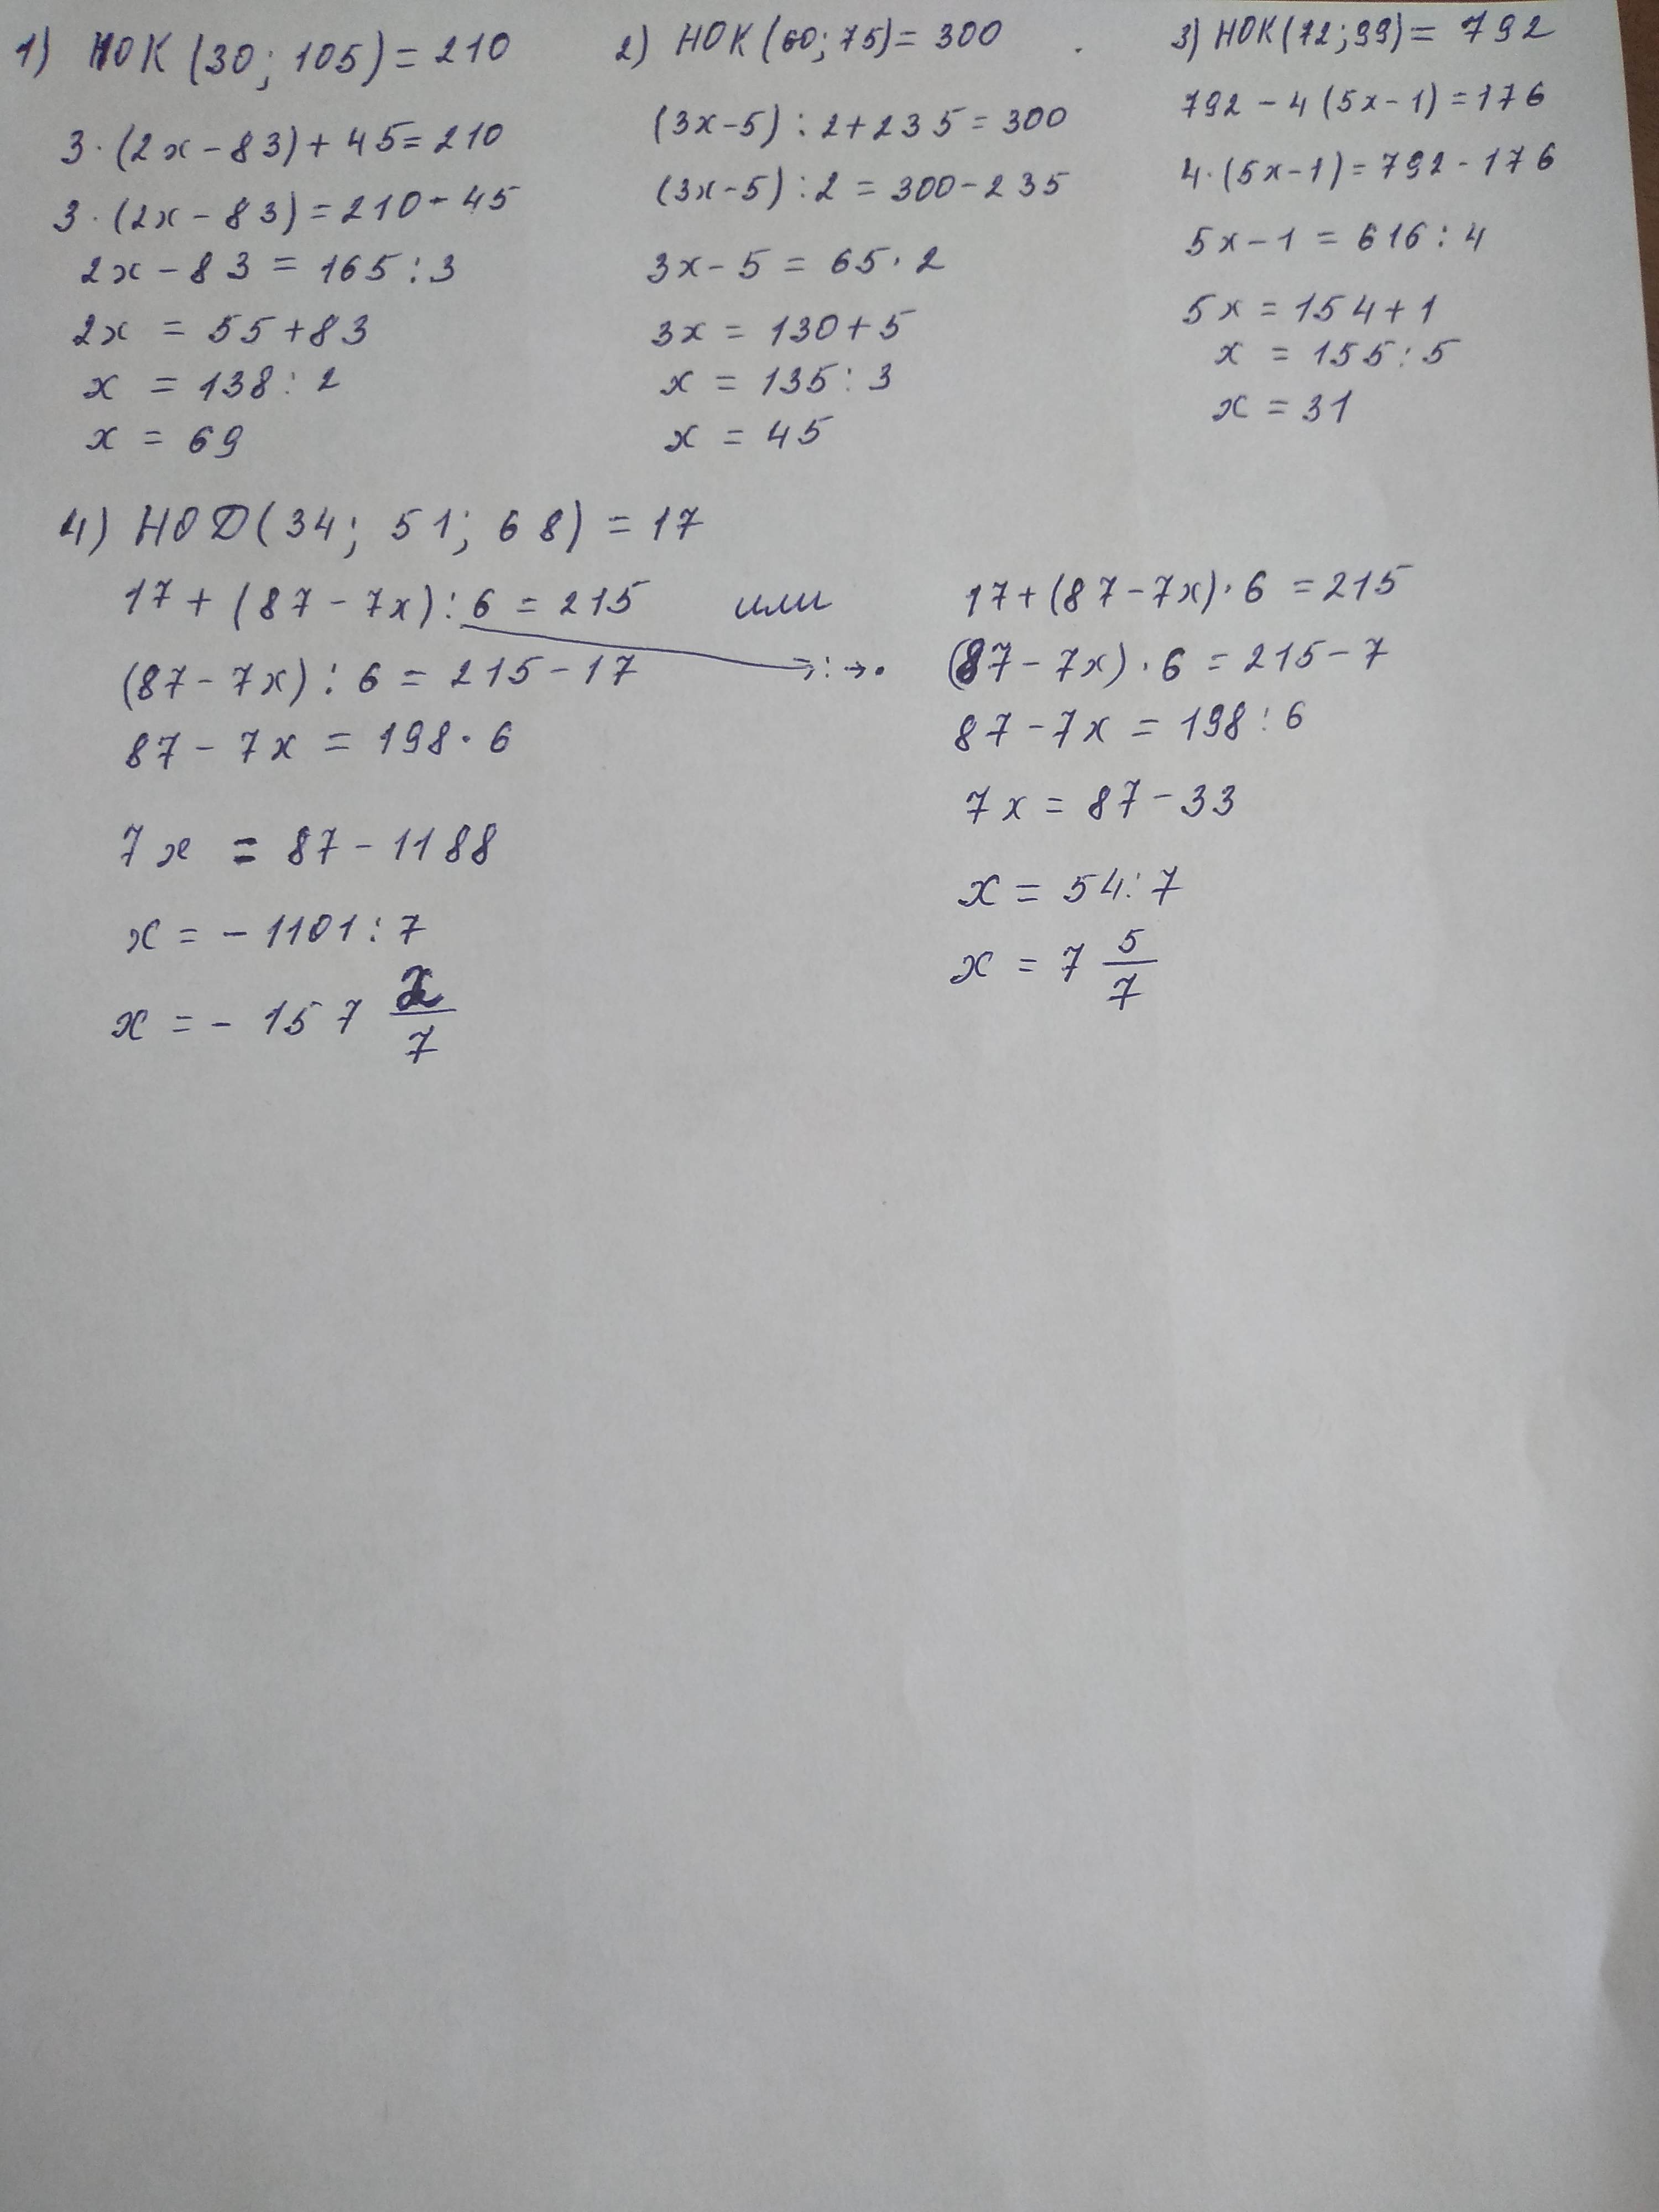 1) НОК (30; 105) = 210
3·(2x - 83) + 45 = 210
3·(2x - 83) = 210 - 45
2x - 83 = 165 : 3
2x = 55 + 83
x = 138 : 2
x = 69
2) НОК (60; 75) = 300
(3x - 5) : 2 + 235 = 300
(3x - 5) : 2 = 300 - 235
3x - 5 = 65 · 2
3x = 130 + 5
x = 135 : 3
x = 45
3) НОК (72; 99) = 792
792 - 4 (5x - 1) = 176
4·(5x - 1) = 792 - 176
5x - 1 = 616 : 4
5x = 154 + 1
x = 155 : 5
x = 31
4) НОД (34; 51; 68) = 17
17 + (87 - 7x) : 6 = 215 или
(87 - 7x) : 6 = 215 - 17
87 - 7x = 198 · 6
7x = 87 - 1188
x = - 1101 : 7
x = - 157 2/7
: → ·
17 + (87 - 7x) · 6 = 215
(87 - 7x) · 6 = 215 - 7
87 - 7x = 198 : 6
7x = 87 - 33
x = 54 : 7
x = 7 5/7